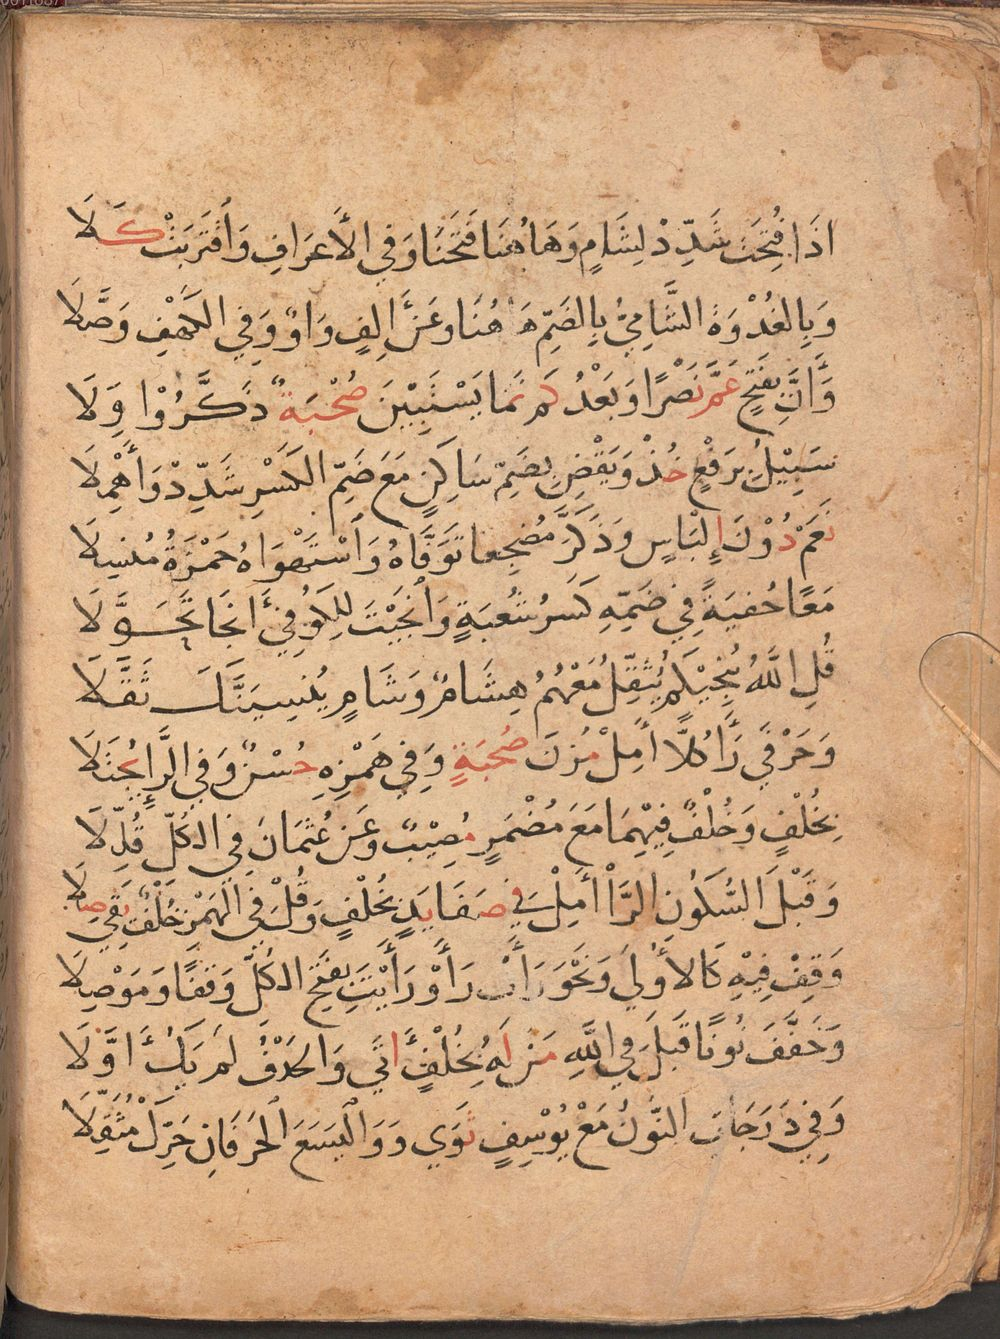 اذَا فُتِحَتْ شَدِّدْ لِشَامٍ وَهَاهُنَا فَتَحْنَا وَفِي الأَعرَافِ وَاقْتَرَبَتْ كَلَا
وَبِالغُدْوَةِ الشَّامِيُّ بِالضَمِّ هَاهُنَا وَعَنْ أَلِفٍ وَاوٌ وَفِي الكَهْفِ وَصَّلَا
وَأَنَّ بِفَتحٍ عَمَّ نَصْرًا وَبَعْدُ كَم نَمَا يَسْتَبِيْنَ صُحْبَةٌ ذَكَّرُوْا وِلَا
سَبِيْلَ بِرَفْعٍ خُذْ وَيَقْضِ بِضَمِّ سَاكِنٍ مَعَ ضَمِّ الكَسْرِ شَدِّدْ وَأَهْمِلَا
نَعَمْ دُوْنَ إِلْبَاسٍ وَذَكَّرَ مُضْجِعا تَوَفَّاهُ وَاسْتَهْوَاهُ حَمْزَةُ مُنسِلَا
مَعًا خُفيَةً فِي ضَمِّهِ كَسْرُ شُعْبَةٍ وَأَنجَيْتَ لِلكُوفِيِّ أَنجَا تَحَوَّلَا
قُلِ اللَّهُ يُنجِيْكُم يُثَقِّلُ مَعْهُمُ هِشَامٌ وَشَامٍ يُنسِيَنَّكَ ثَقَّلَا
وَحَرْفَي رَأَى كُلًّا أَمِلْ مُزْنَ صُحبَةٍ وَفِي هَمْزِهِ حُسْنٌ وَفِي الرَّا يُجْتَلَا
بِخُلْفٍ وَخُلْفٌ فِيْهِمَا مَعَ مُضْمَرٍ مُصِيْبٌ وَعَن عُثْمَانَ فِي الكُلِّ قُلِّلَا
وَقَبْلَ السُّكُونِ الرَّا أَمِلْ فِي صَفَا يَدٍ بِخُلْفٍ وَقُلْ فِي الهَمْزِ خُلْفٌ يَقِي صِلَا
وَقِفْ فِيْهِ كَالأُولَى وَنَحْوَ رَأَتْ رَأَوْا رَأَيْتَ بِفَتْحِ الكُلِّ وَقفًا وَمَوْصِلَا
وَخَفَّفَ نُونًا قَبْلَ فِي اللَّهِ مَن لَهُ بِخُلْفٍ أَتَى وَالحَذْفُ لَم يَكُ أَوَّلَا
وَفِي دَرَجَاتِ النُّونُ مَعْ يُوْسِفٍ ثَوَى وَوَاليَسَعَ الحَرفَانِ حَرِّكْ مُثَقِّلَا